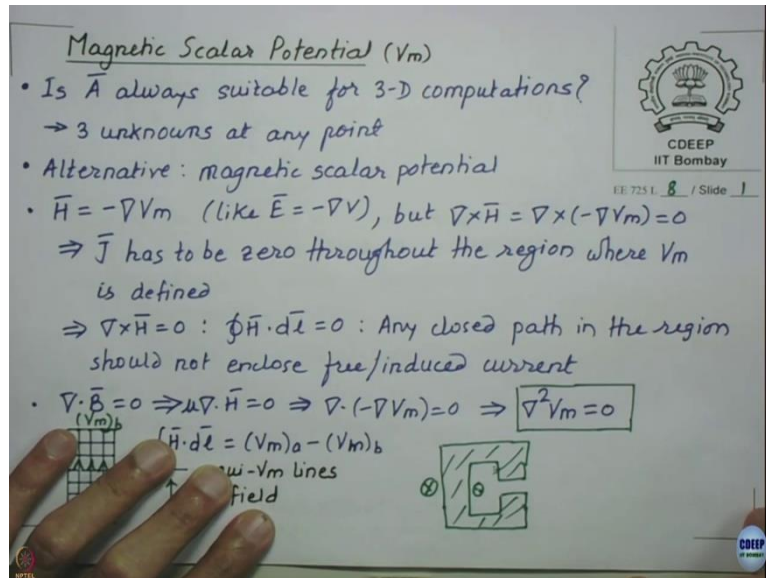 Magnetic Scalar Potential (Vm)
• Is A̅ always suitable for 3-D computations?
→ 3 unknowns at any point
• Alternative : magnetic scalar potential
• H̅ = -∇Vm (like E̅ = -∇V), but ∇×H̅ = ∇×(-∇Vm) = 0
⇒ J̅ has to be zero throughout the region where Vm
is defined
⇒ ∇×H̅ = 0 : ∮H̅·dl̅ = 0 : Any closed path in the region
should not enclose free/induced current
• ∇·B̅ = 0 ⇒ μ∇·H̅ = 0 ⇒ ∇·(-∇Vm) = 0 ⇒ ∇²Vm = 0
(Vm)b
∫H̅·dl̅ = (Vm)a - (Vm)b
-Vm lines
field
CDEEP
IIT Bombay
EE 725 L 8 / Slide 1
NPTEL
CDEEP
IIT BOMBAY